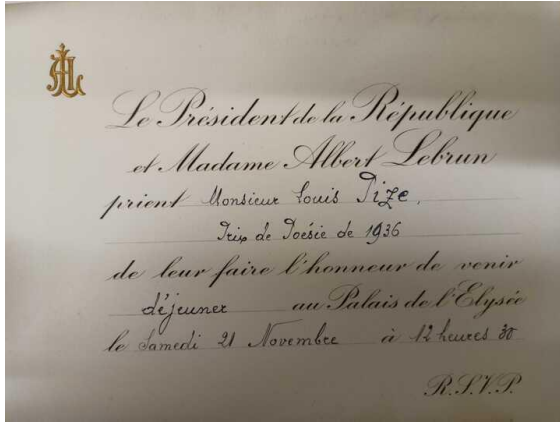 Le Président de la République
et Madame Albert Lebrun
prient Monsieur Louis Pize,
Prix de Poésie de 1936
de leur faire l'honneur de venir
déjeuner au Palais de l'Elysée
le Samedi 21 Novembre à 12 heures 30
R.S.V.P.